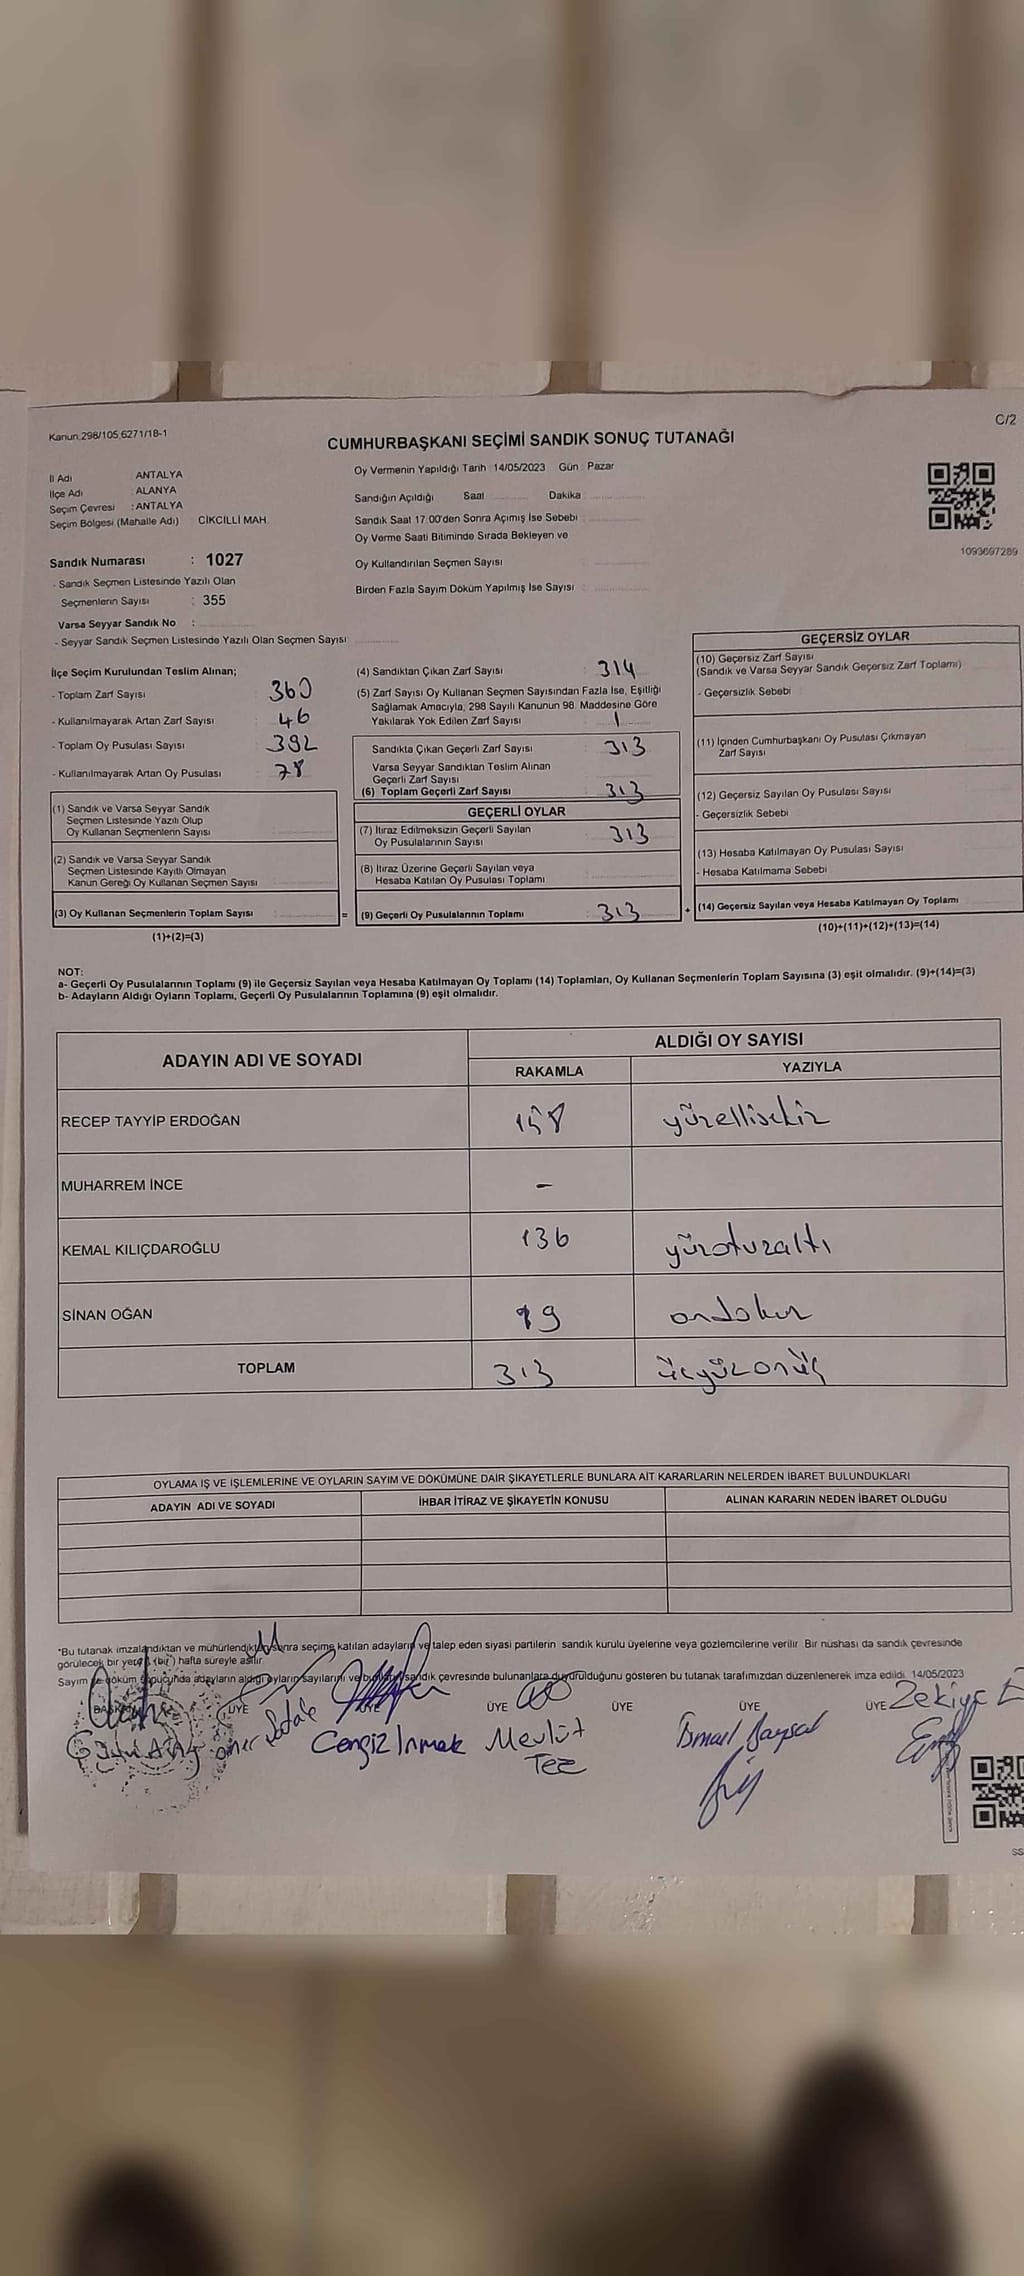 C/2
Kanun:298/105,6271/18-1
CUMHURBAŞKANI SEÇİMİ SANDIK SONUÇ TUTANAĞI
İl Adı ANTALYA
İlçe Adı : ALANYA
Seçim Çevresi : ANTALYA
Seçim Bölgesi (Mahalle Adı) CİKCİLLİ MAH.
Sandık Numarası : 1027
- Sandık Seçmen Listesinde Yazılı Olan
Seçmenlerin Sayısı : 355
Varsa Seyyar Sandık No :
- Seyyar Sandık Seçmen Listesinde Yazılı Olan Seçmen Sayısı
Oy Vermenin Yapıldığı Tarih 14/05/2023 Gün : Pazar
Sandığın Açıldığı Saat Dakika
Sandık Saat 17:00'den Sonra Açımış İse Sebebi
Oy Verme Saati Bitiminde Sırada Bekleyen ve
Oy Kullandırılan Seçmen Sayısı
Birden Fazla Sayım Döküm Yapılmış İse Sayısı
1093697289
İlçe Seçim Kurulundan Teslim Alınan;
- Toplam Zarf Sayısı 360
- Kullanılmayarak Artan Zarf Sayısı 46
- Toplam Oy Pusulası Sayısı 392
- Kullanılmayarak Artan Oy Pusulası 78
(1) Sandık ve Varsa Seyyar Sandık
Seçmen Listesinde Yazılı Olup
Oy Kullanan Seçmenlerin Sayısı
(2) Sandık ve Varsa Seyyar Sandık
Seçmen Listesinde Kayıtlı Olmayan
Kanun Gereği Oy Kullanan Seçmen Sayısı
(3) Oy Kullanan Seçmenlerin Toplam Sayısı =
(1)+(2)=(3)
(4) Sandıktan Çıkan Zarf Sayısı : 314
(5) Zarf Sayısı Oy Kullanan Seçmen Sayısından Fazla İse, Eşitliği
Sağlamak Amacıyla, 298 Sayılı Kanunun 98. Maddesine Göre
Yakılarak Yok Edilen Zarf Sayısı : 1
Sandıkta Çıkan Geçerli Zarf Sayısı : 313
Varsa Seyyar Sandıktan Teslim Alınan
Geçerli Zarf Sayısı
(6) Toplam Geçerli Zarf Sayısı : 313
GEÇERLİ OYLAR
(7) İtiraz Edilmeksizin Geçerli Sayılan
Oy Pusulalarının Sayısı : 313
(8) İtiraz Üzerine Geçerli Sayılan veya
Hesaba Katılan Oy Pusulası Toplamı
(9) Geçerli Oy Pusulalarının Toplamı : 313 +
GEÇERSİZ OYLAR
(10) Geçersiz Zarf Sayısı
(Sandık ve Varsa Seyyar Sandık Geçersiz Zarf Toplamı)
- Geçersizlik Sebebi
(11) İçinden Cumhurbaşkanı Oy Pusulası Çıkmayan
Zarf Sayısı
(12) Geçersiz Sayılan Oy Pusulası Sayısı
- Geçersizlik Sebebi
(13) Hesaba Katılmayan Oy Pusulası Sayısı
- Hesaba Katılmama Sebebi
(14) Geçersiz Sayılan veya Hesaba Katılmayan Oy Toplamı
(10)+(11)+(12)+(13)=(14)
NOT:
a- Geçerli Oy Pusulalarının Toplamı (9) ile Geçersiz Sayılan veya Hesaba Katılmayan Oy Toplamı (14) Toplamları, Oy Kullanan Seçmenlerin Toplam Sayısına (3) eşit olmalıdır. (9)+(14)=(3)
b- Adayların Aldığı Oyların Toplamı, Geçerli Oy Pusulalarının Toplamına (9) eşit olmalıdır.
ADAYIN ADI VE SOYADI ALDIĞI OY SAYISI
RAKAMLA YAZIYLA
RECEP TAYYİP ERDOĞAN 158 yüzellisekiz
MUHARREM İNCE -
KEMAL KILIÇDAROĞLU 136 yüzotuzaltı
SİNAN OĞAN 19 ondokuz
TOPLAM 313 üçyüzonüç
OYLAMA İŞ VE İŞLEMLERİNE VE OYLARIN SAYIM VE DÖKÜMÜNE DAİR ŞİKAYETLERLE BUNLARA AİT KARARLARIN NELERDEN İBARET BULUNDUKLARI
ADAYIN ADI VE SOYADI İHBAR İTİRAZ VE ŞİKAYETİN KONUSU ALINAN KARARIN NEDEN İBARET OLDUĞU
*Bu tutanak imzalandıktan ve mühürlendikten sonra seçime katılan adayların ve talep eden siyasi partilerin sandık kurulu üyelerine veya gözlemcilerine verilir. Bir nüshası da sandık çevresinde
görülecek bir yere (bir) hafta süreyle asılır.
Sayım ve döküm sonucunda adayların aldığı oyların sayılarını ve bunların sandık çevresinde bulunanlara duyurulduğunu gösteren bu tutanak tarafımızdan düzenlenerek imza edildi. 14/05/2023
BAŞKAN ÜYE ÜYE ÜYE ÜYE ÜYE ÜYE Zekiye
Cengiz Irmak Mevlüt Tez İsmail Baysal